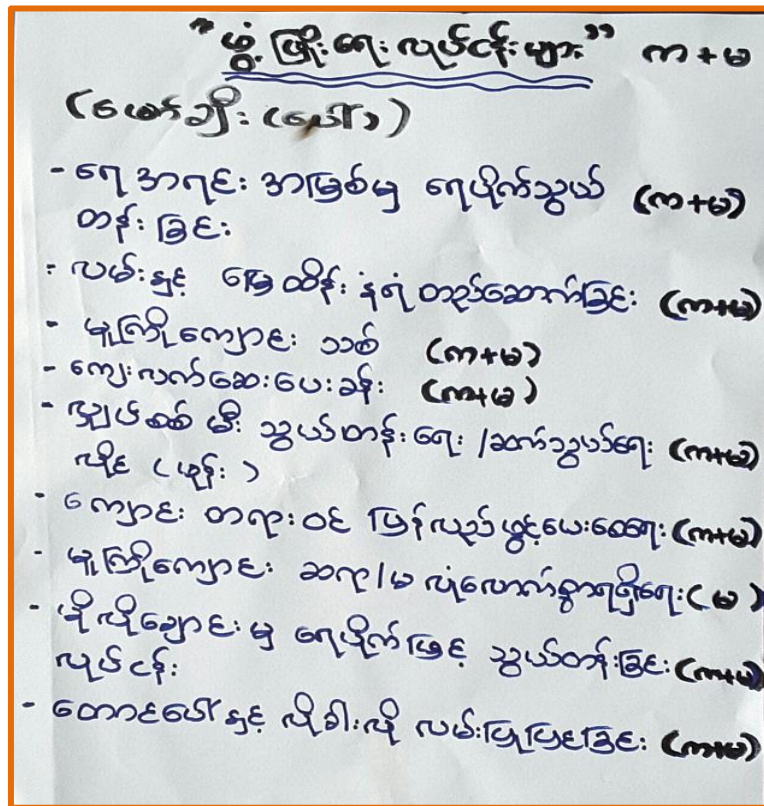 "ဖွံ့ဖြိုးရေးလုပ်ငန်းများ" က + မ
(မောက်ချီး (ပေါ်))
- ရေအရင်းအမြစ်မှ ရေပိုက်သွယ် (က+မ)
တန်းခြင်း
- လမ်းနှင့် မြေထိန်းနံရံ တည်ဆောက်ခြင်း (က+မ)
- မူကြိုကျောင်း သစ် (က+မ)
- ကျေးလက်ဆေးပေးခန်း (က+မ)
- လျှပ်စစ် မီး သွယ်တန်းရေး / ဆက်သွယ်ရေး (က+မ)
လိုင်း (ဖုန်း)
- ကျောင်း တရားဝင် ပြန်လည်ဖွင့်ပေးစေရေး (က+မ)
- မူကြိုကျောင်း ဆရာ/မ လုံလောက်စွာရရှိရေး (မ)
- ချောင်းမှ ရေပိုက်ဖြင့် သွယ်တန်းခြင်း (က+မ)
လုပ်ငန်း
- တောင်ပေါ်နှင့် လမ်းပြုပြင်ခြင်း (က+မ)